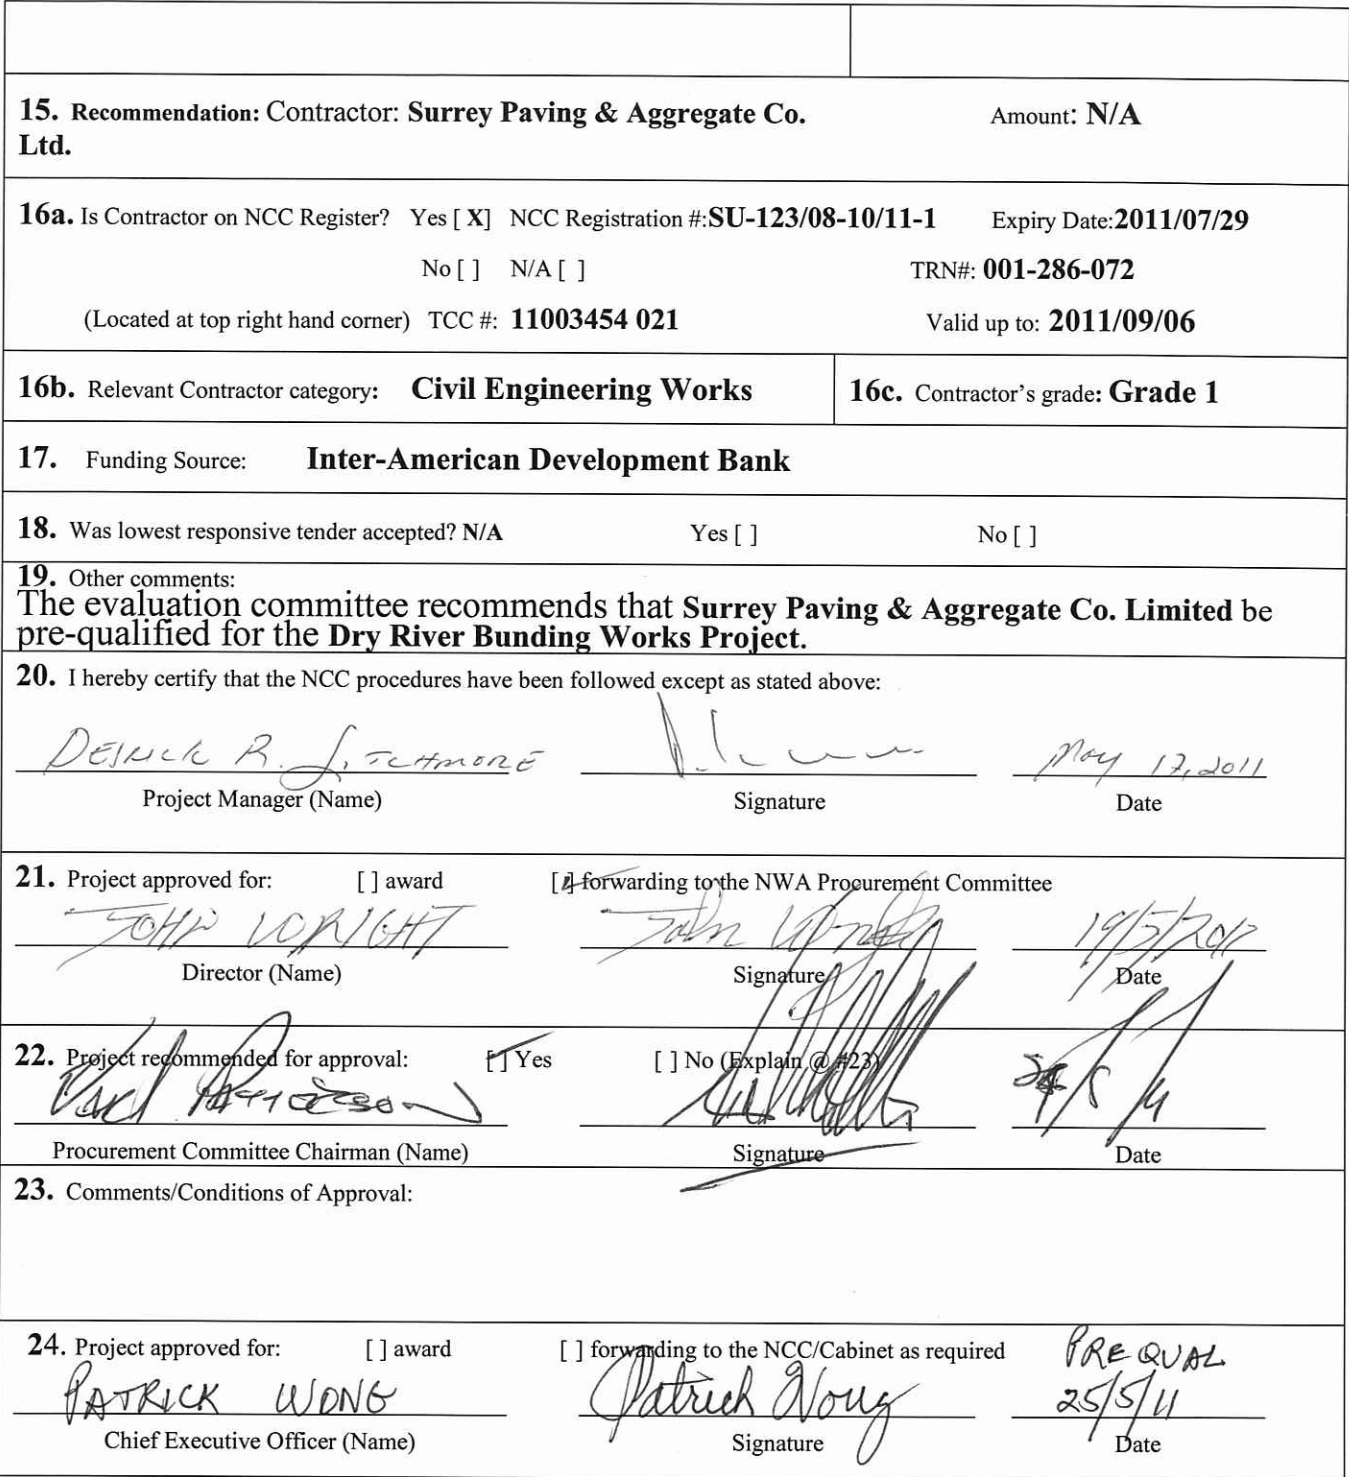 15. Recommendation: Contractor: Surrey Paving & Aggregate Co. Amount: N/A
Ltd.
16a. Is Contractor on NCC Register? Yes [ X] NCC Registration #:SU-123/08-10/11-1 Expiry Date:2011/07/29
No [ ] N/A [ ] TRN#: 001-286-072
(Located at top right hand corner) TCC #: 11003454 021 Valid up to: 2011/09/06
16b. Relevant Contractor category: Civil Engineering Works 16c. Contractor's grade: Grade 1
17. Funding Source: Inter-American Development Bank
18. Was lowest responsive tender accepted? N/A Yes [ ] No [ ]
19. Other comments:
The evaluation committee recommends that Surrey Paving & Aggregate Co. Limited be
pre-qualified for the Dry River Bunding Works Project.
20. I hereby certify that the NCC procedures have been followed except as stated above:
R. May 17, 2011
Project Manager (Name) Signature Date
21. Project approved for: [ ] award [ ] forwarding to the NWA Procurement Committee
JOHN WRIGHT John
Director (Name) Signature Date
22. Project recommended for approval: [ ] Yes [ ] No (Explain @ #23)
Procurement Committee Chairman (Name) Signature Date
23. Comments/Conditions of Approval:
24. Project approved for: [ ] award [ ] forwarding to the NCC/Cabinet as required PREQUAL
PATRICK WONG Patrick Wong 25/5/11
Chief Executive Officer (Name) Signature Date